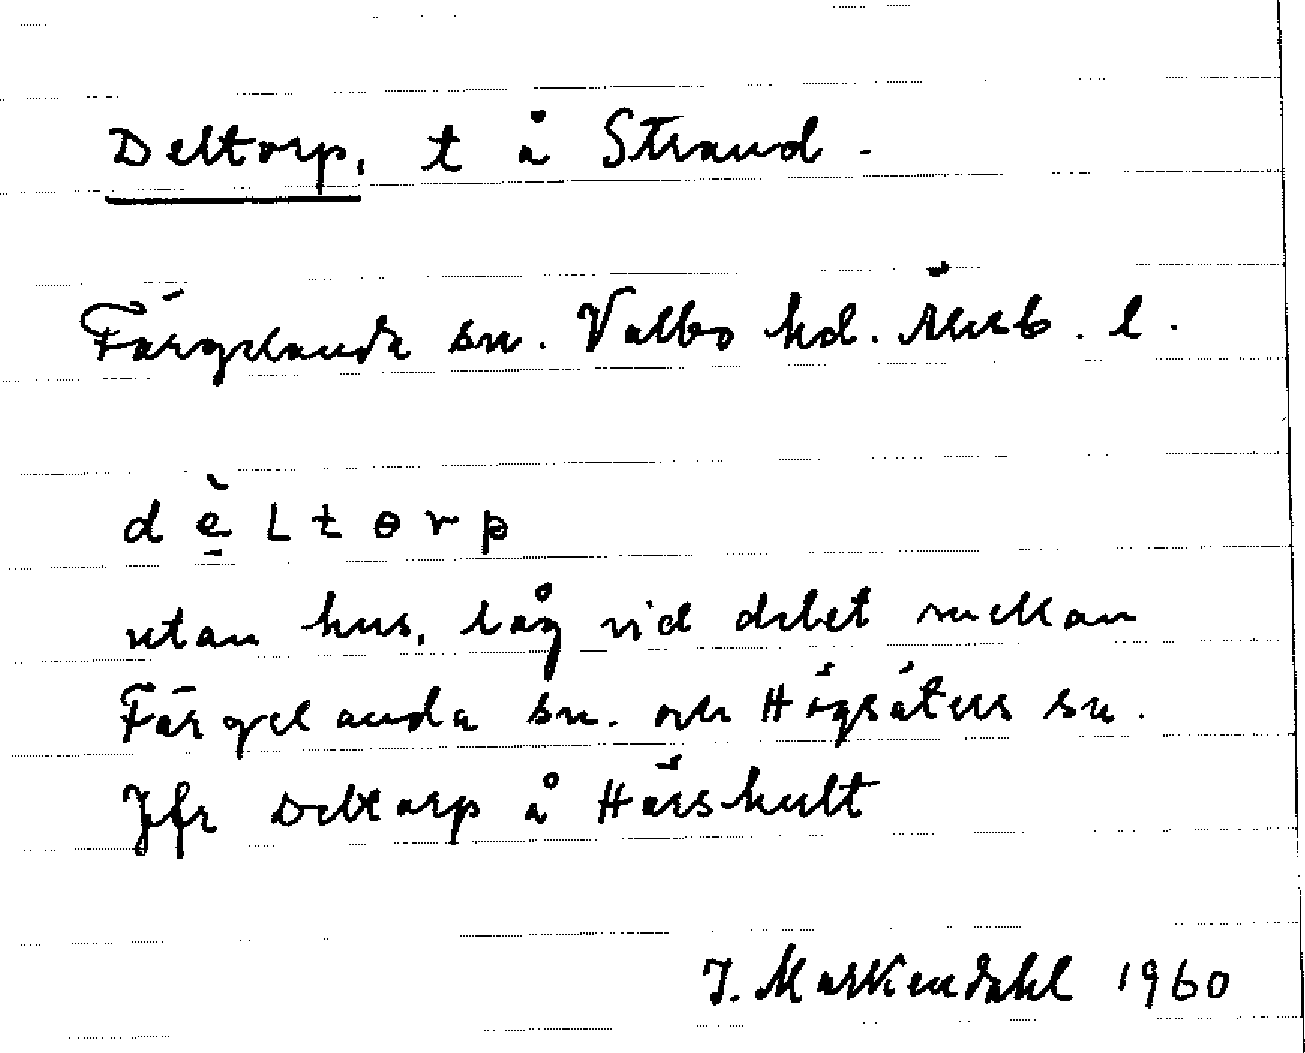 Deltorp, t å Strand.
Färgelanda sn. Valbo hd. Älvsb. l.
dè̱Ltɵrp
utan hus, låg vid delet mellan
Färgelanda sn. och Högsäters sn.
Jfr Deltorp å Härskult
J. Markendahl 1960